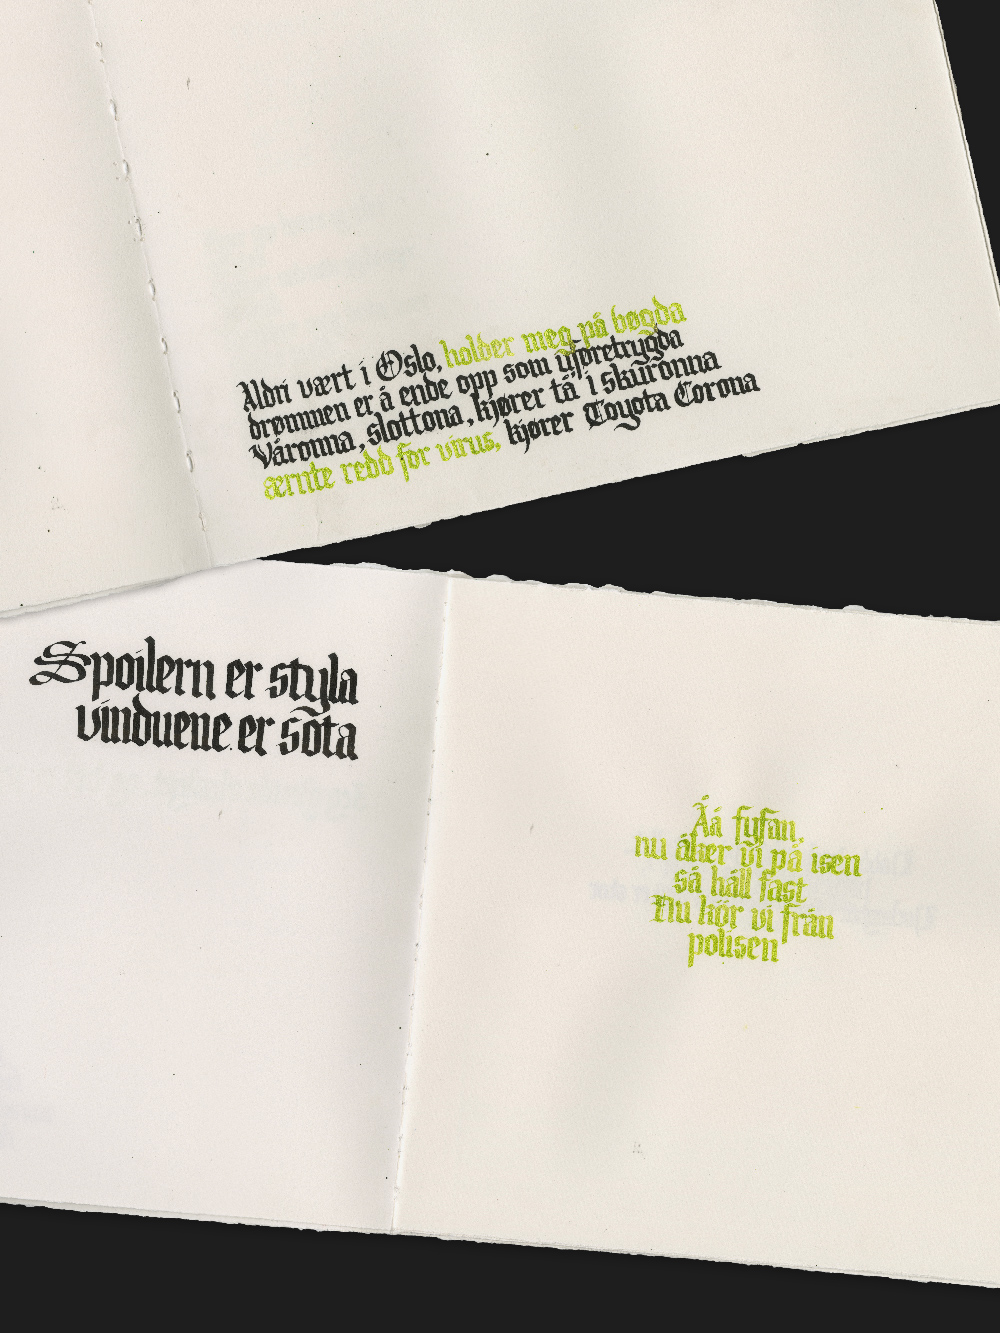 Aldri vært i Oslo, holder meg på bøgda
drømmen er å ende opp som uføretrygda
Våronna, slottona, kjører tå i skuronna
ærnte redd for virus, kjører Toyota Corona
Spoilern er styla
vinduene er sota
Åå fyfan,
nu åker vi på isen
så håll fast
Nu kör vi från
polisen